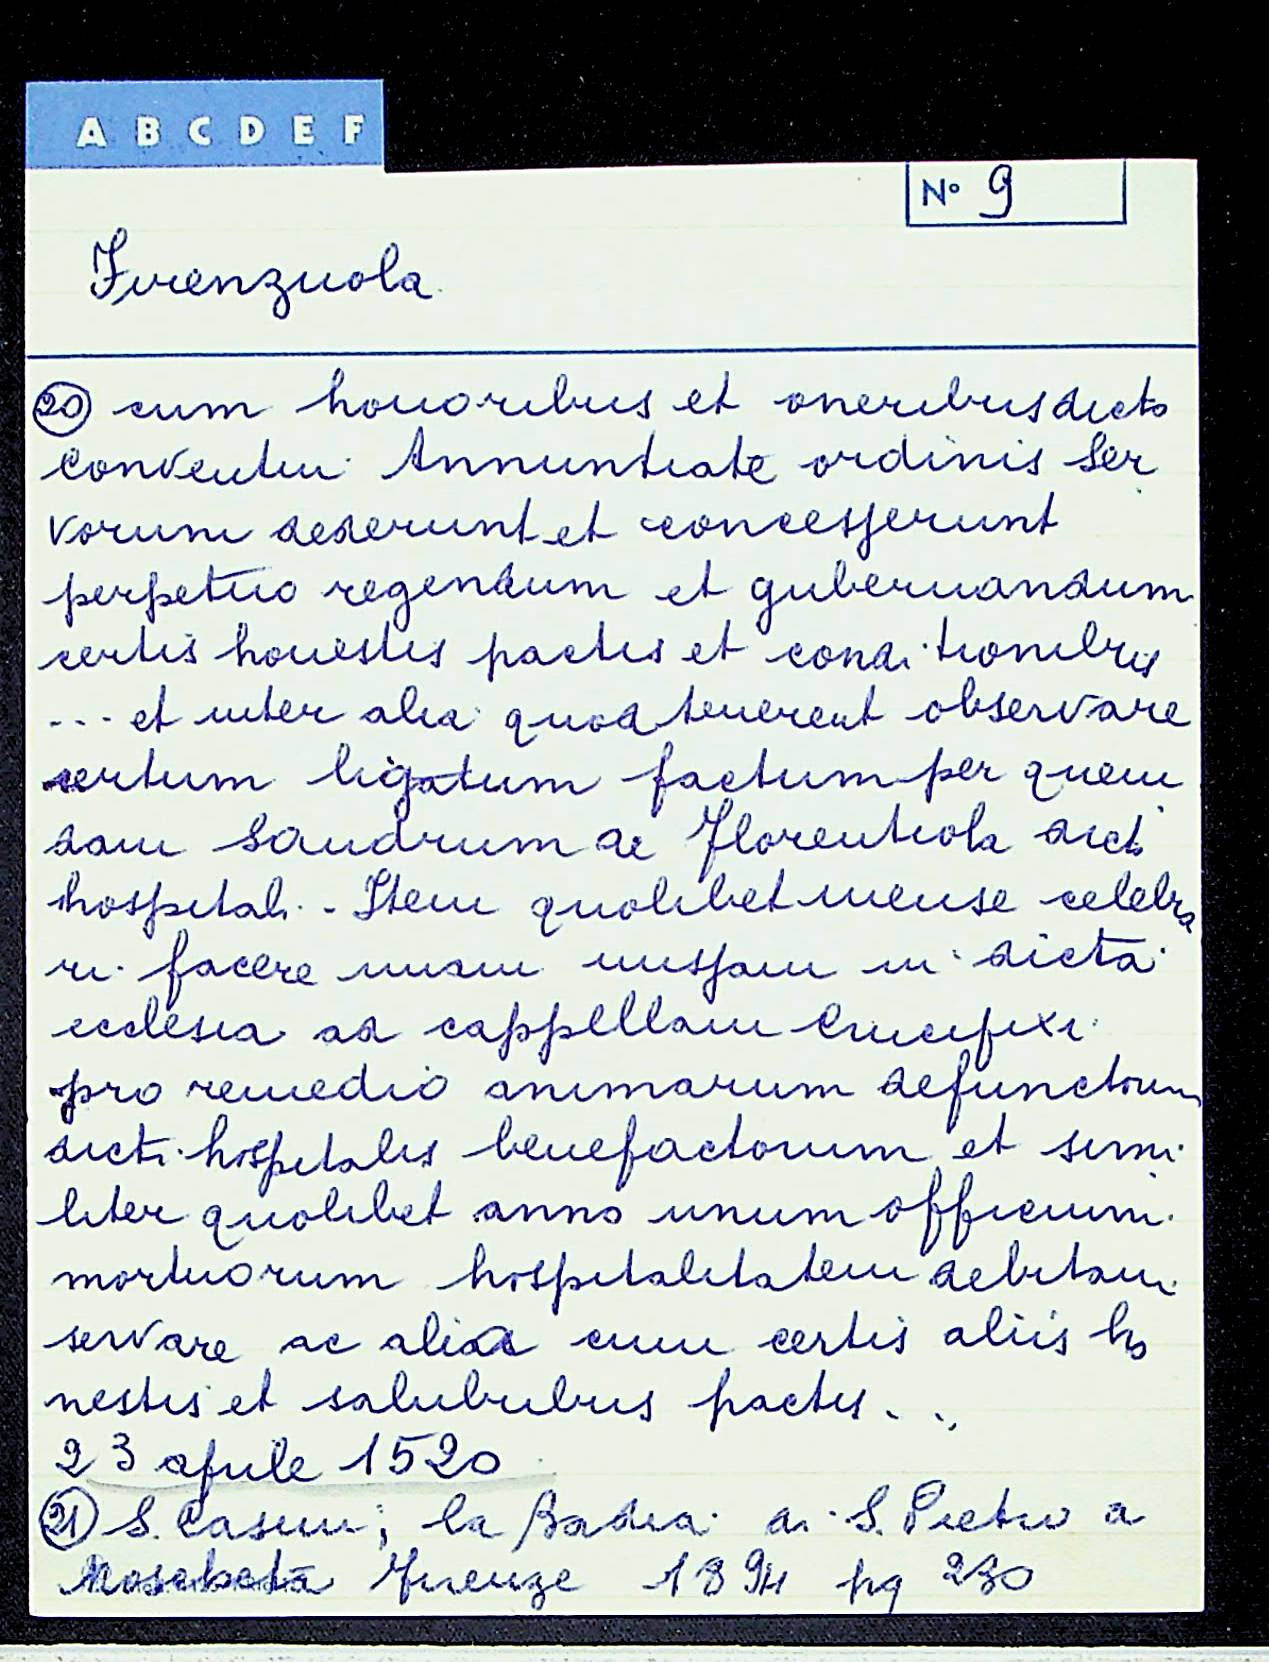 A B C D E F
N° 9
Firenzuola
20 cum honoribus et oneribus dicto
Conventui Annuntiate ordinis Ser
vorum dederunt et concesserunt
perpetuo regendum et gubernandum
certis honestis pactis et conditionibus
... et inter alia quod tenerent observare
certum ligatum factum per quem
dam Sandrum de Florentiola dicti
hospitali.. Item quolibet mense celebra
ri facere unam missam in dicta
ecclesia ad cappellam Crucifixi
pro remedio animarum defunctorum
dicti hospitalis benefactorum et simi
liter quolibet anno unum officium
mortuorum hospitalitatem debitam
servare ac alia cum certis aliis ho
nestis et salubribus pactis...
23 aprile 1520
21 S. Casini; la Badia di S. Pietro a
Moscheta Firenze 1894 pg 230